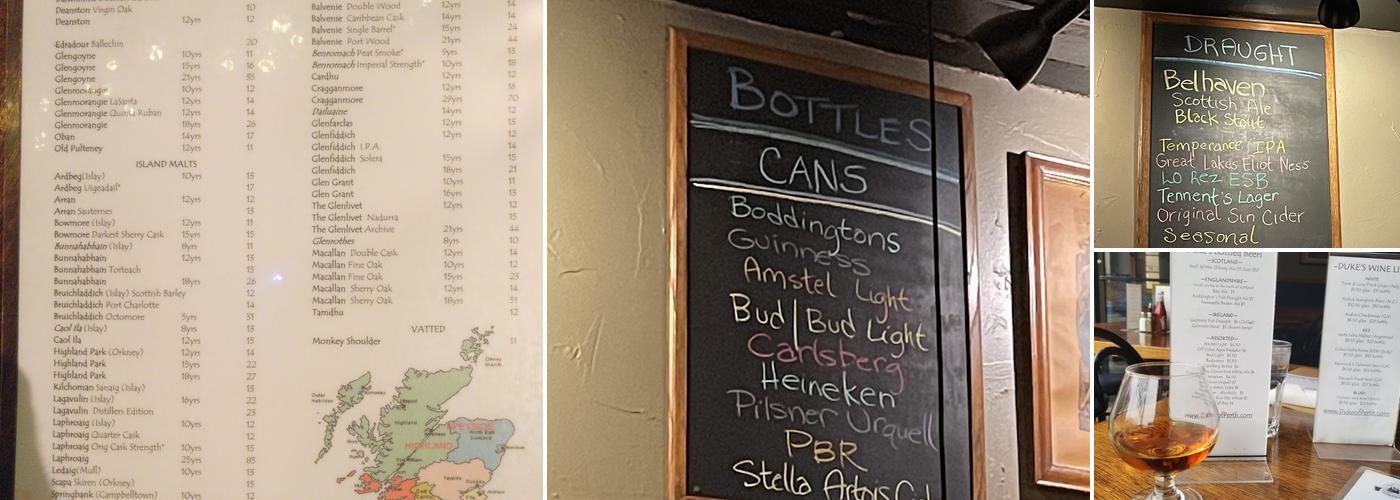 Deanston Virgin Oak 10
Deanston 12yrs 12
Edradour Ballechin 20
Glengoyne 10yrs 11
Glengoyne 15yrs 16
Glengoyne 21yrs 35
Glenmorangie 10yrs 12
Glenmorangie LaSanta 12yrs 14
Glenmorangie Quinta Ruban 12yrs 14
Glenmorangie 18yrs 26
Oban 14yrs 17
Old Pulteney 12yrs 11
ISLAND MALTS
Ardbeg(Islay) 10yrs 13
Ardbeg Uigeadail* 17
Arran 12yrs 12
Arran Sauternes 13
Bowmore (Islay) 12yrs 11
Bowmore Darkest Sherry Cask 15yrs 15
Bunnahabhain (Islay) 8yrs 11
Bunnahabhain 12yrs 13
Bunnahabhain Toiteach 15
Bunnahabhain 18yrs 26
Bruichladdich (Islay) Scottish Barley 12
Bruichladdich Port Charlotte 14
Bruichladdich Octomore 5yrs 31
Caol Ila (Islay) 8yrs 13
Caol Ila 12yrs 15
Highland Park (Orkney) 12yrs 14
Highland Park 15yrs 22
Highland Park 18yrs 27
Kilchoman Sanaig (Islay) 13
Lagavulin (Islay) 16yrs 22
Lagavulin Distillers Edition 23
Laphroaig (Islay) 10yrs 12
Laphroaig Quarter Cask 12
Laphroaig Orig Cask Strength* 10yrs 15
Laphroaig 25yrs 85
Ledaig(Mull) 10yrs 13
Scapa Skiren (Orkney) 15
Springbank (Campbelltown) 10yrs
Balvenie Double Wood 12yrs 14
Balvenie Caribbean Cask 14yrs 14
Balvenie Single Barrel* 15yrs 24
Balvenie Port Wood 21yrs 44
Benromach Peat Smoke* 9yrs 13
Benromach Imperial Strength* 10yrs 18
Cardhu 12yrs 12
Cragganmore 12yrs 16
Cragganmore 29yrs 70
Dailuaine 14yrs 12
Glenfarclas 12yrs 13
Glenfiddich 12yrs 12
Glenfiddich I.P.A. 14
Glenfiddich Solera 15yrs 15
Glenfiddich 18yrs 21
Glen Grant 10yrs 11
Glen Grant 16yrs 13
The Glenlivet 12yrs 12
The Glenlivet Nadurra 15
The Glenlivet Archive 21yrs 44
Glenrothes 8yrs 10
Macallan Double Cask 12yrs 14
Macallan Fine Oak 10yrs 12
Macallan Fine Oak 15yrs 23
Macallan Sherry Oak 12yrs 14
Macallan Sherry Oak 18yrs 51
Tamdhu 12
VATTED
Monkey Shoulder 11
SPEYSIDE
HIGHLAND
BOTTLES
CANS
Boddingtons
Guinness
Amstel Light
Bud | Bud Light
Carlsberg
Heineken
Pilsner Urquell
PBR
Stella Artois
DRAUGHT
Belhaven
Scottish Ale
Black Stout
Temperance IPA
Great Lakes Eliot Ness
Lo Rez ESB
Tennent's Lager
Original Sin Cider
Seasonal
~SCOTLAND~
~ENGLANDSHIRE~
~IRELAND~
~ASSORTED~
www.DukeofPerth.com
~DUKE'S WINE
WHITE
RED
BLUSH
www.DukeofPerth.com